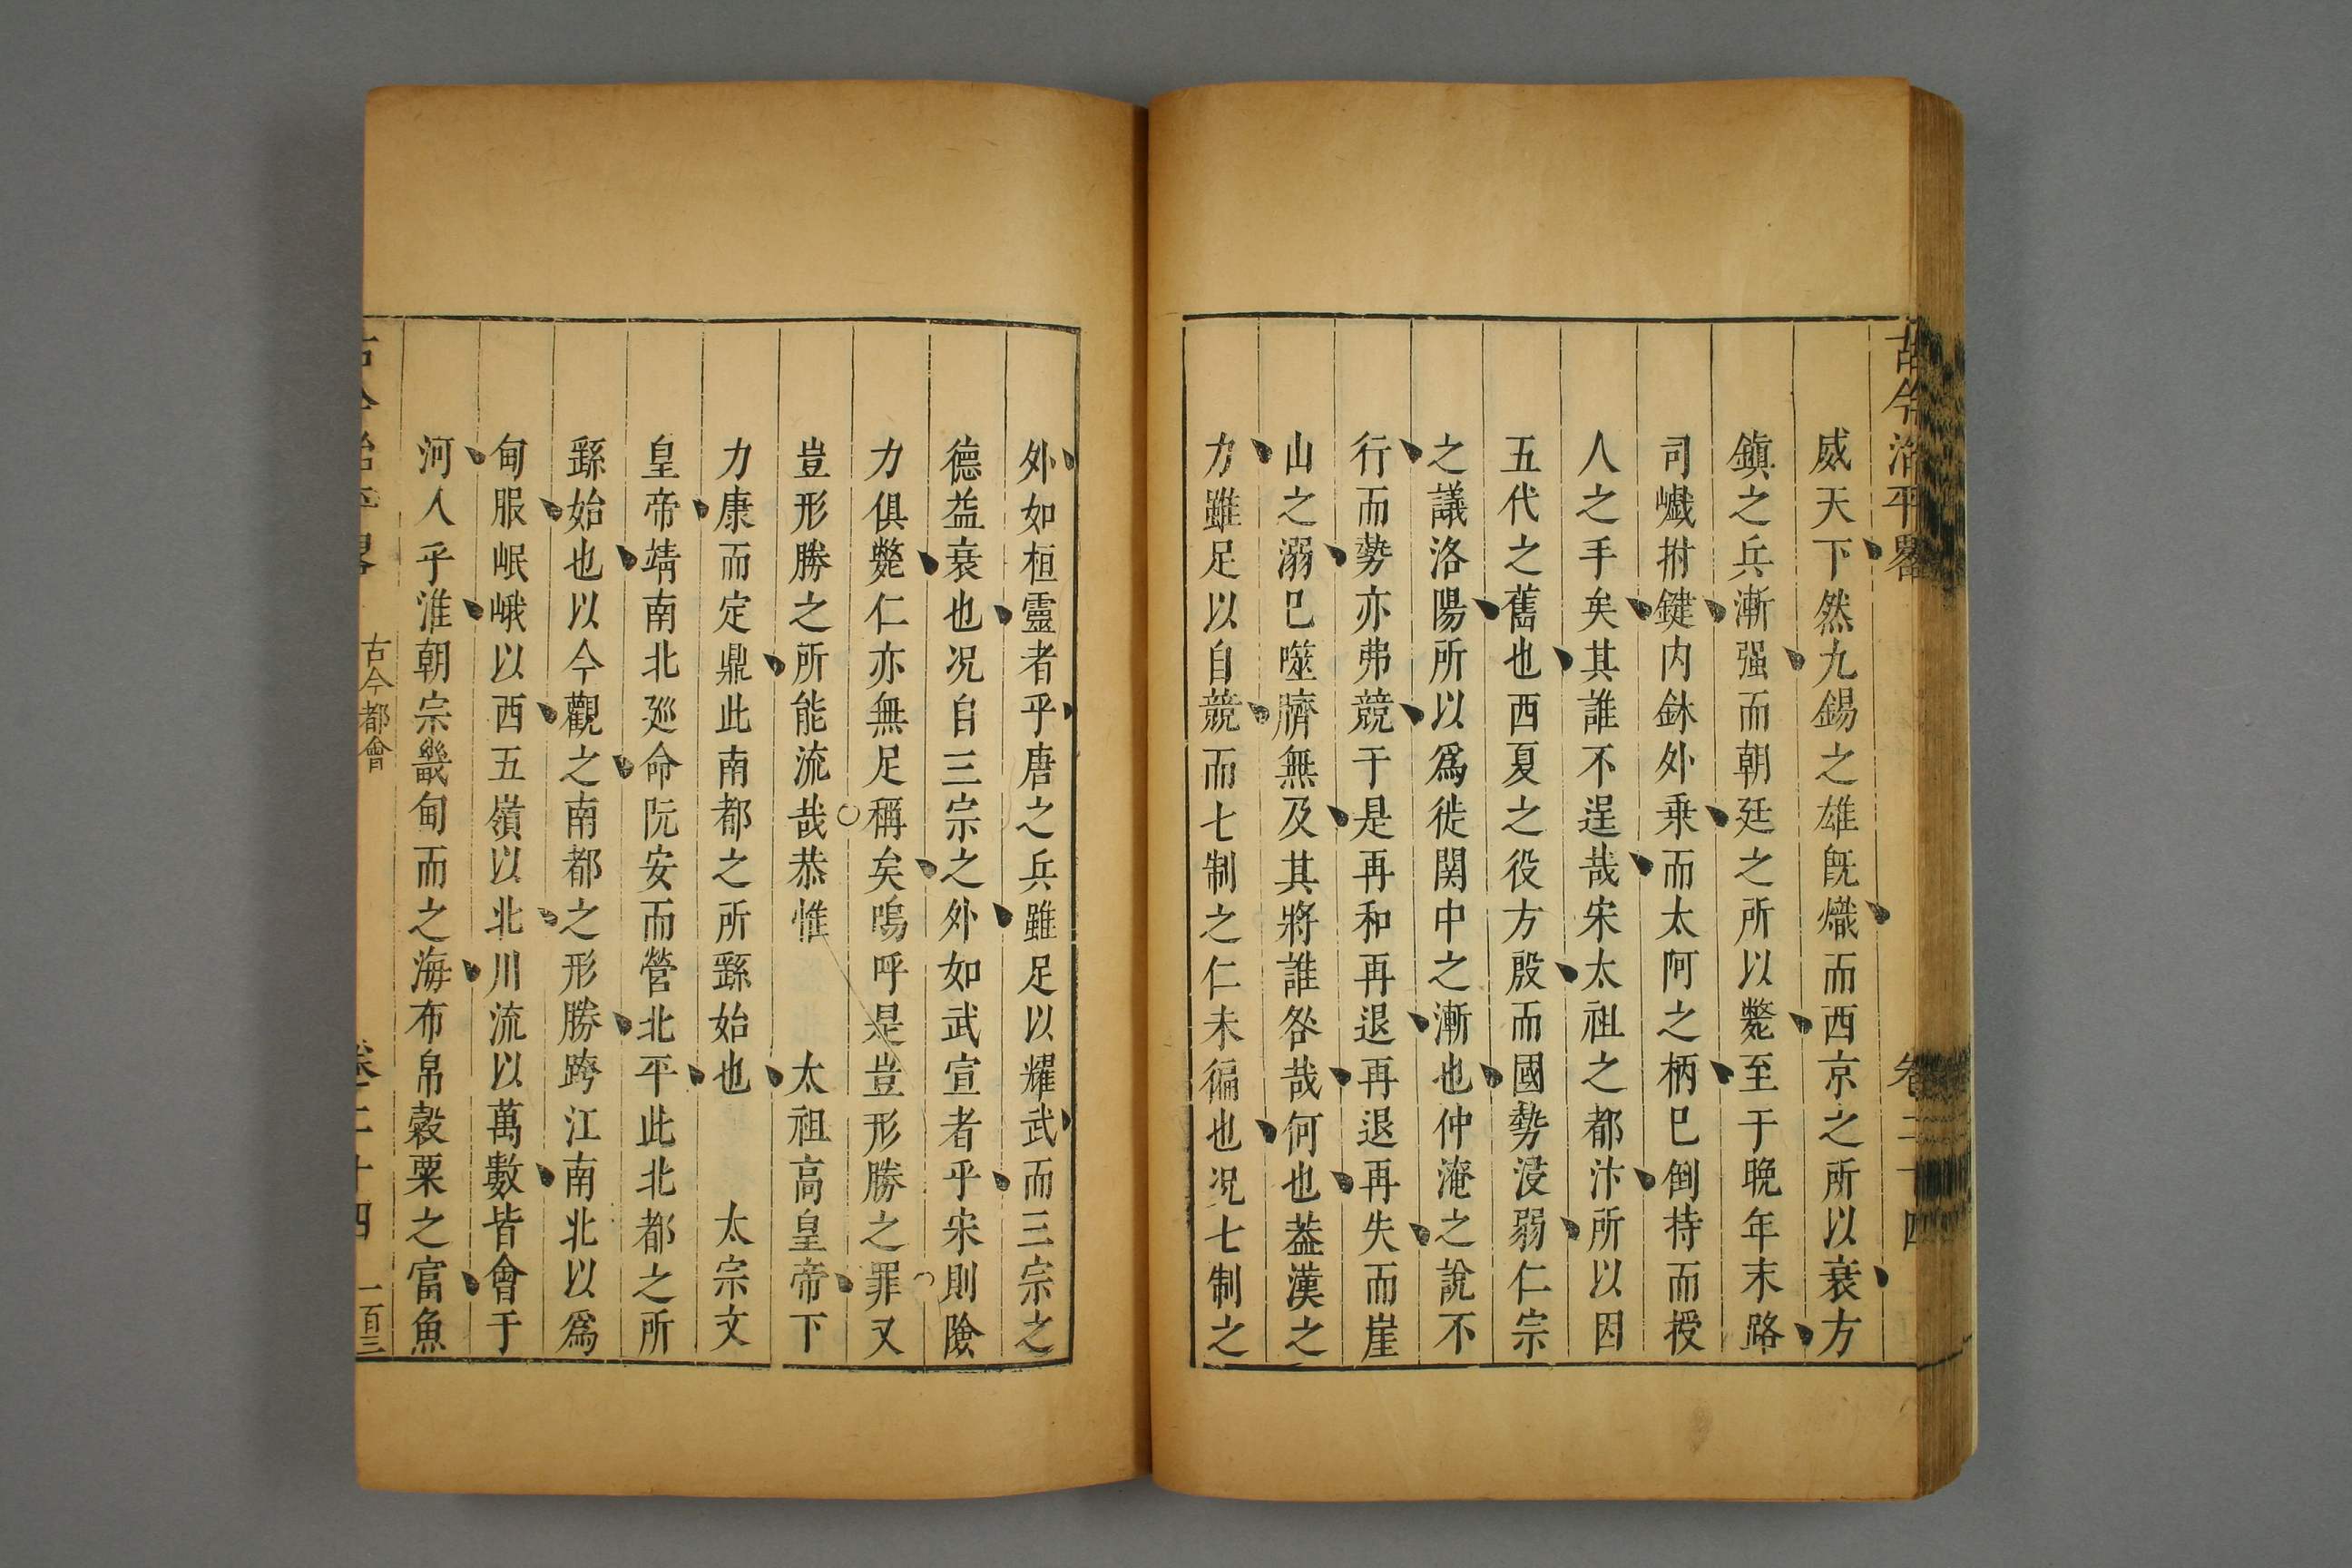 古今治平畧 卷二十四
威天下然九錫之雄旣熾而西京之所以衰方
鎭之兵漸强而朝廷之所以斃至于晚年末路
司巇拊鍵内鉥外乗而太阿之柄巳倒持而授
人之手矣其誰不逞哉宋太祖之都汴所以因
五代之舊也西夏之役方殷而國勢浸弱仁宗
之議洛陽所以爲徙関中之漸也仲淹之說不
行而勢亦弗競于是再和再退再退再失而崖
山之溺巳噬臍無及其將誰咎哉何也葢漢之
力雖足以自競而七制之仁未徧也况七制之
外如桓靈者乎唐之兵雖足以耀武而三宗之
德益衰也况自三宗之外如武宣者乎宋則險
力俱斃仁亦無足稱矣嗚呼是豈形勝之罪又
豈形勝之所能流哉恭惟 太祖高皇帝下
力康而定鼎此南都之所繇始也 太宗文
皇帝靖南北廵命阮安而營北平此北都之所
繇始也以今觀之南都之形勝跨江南北以爲
甸服岷峨以西五嶺以北川流以萬數皆會于
河人乎淮朝宗畿甸而之海布帛榖粟之富魚
古今治平畧 古今都會 卷二十四 一百三